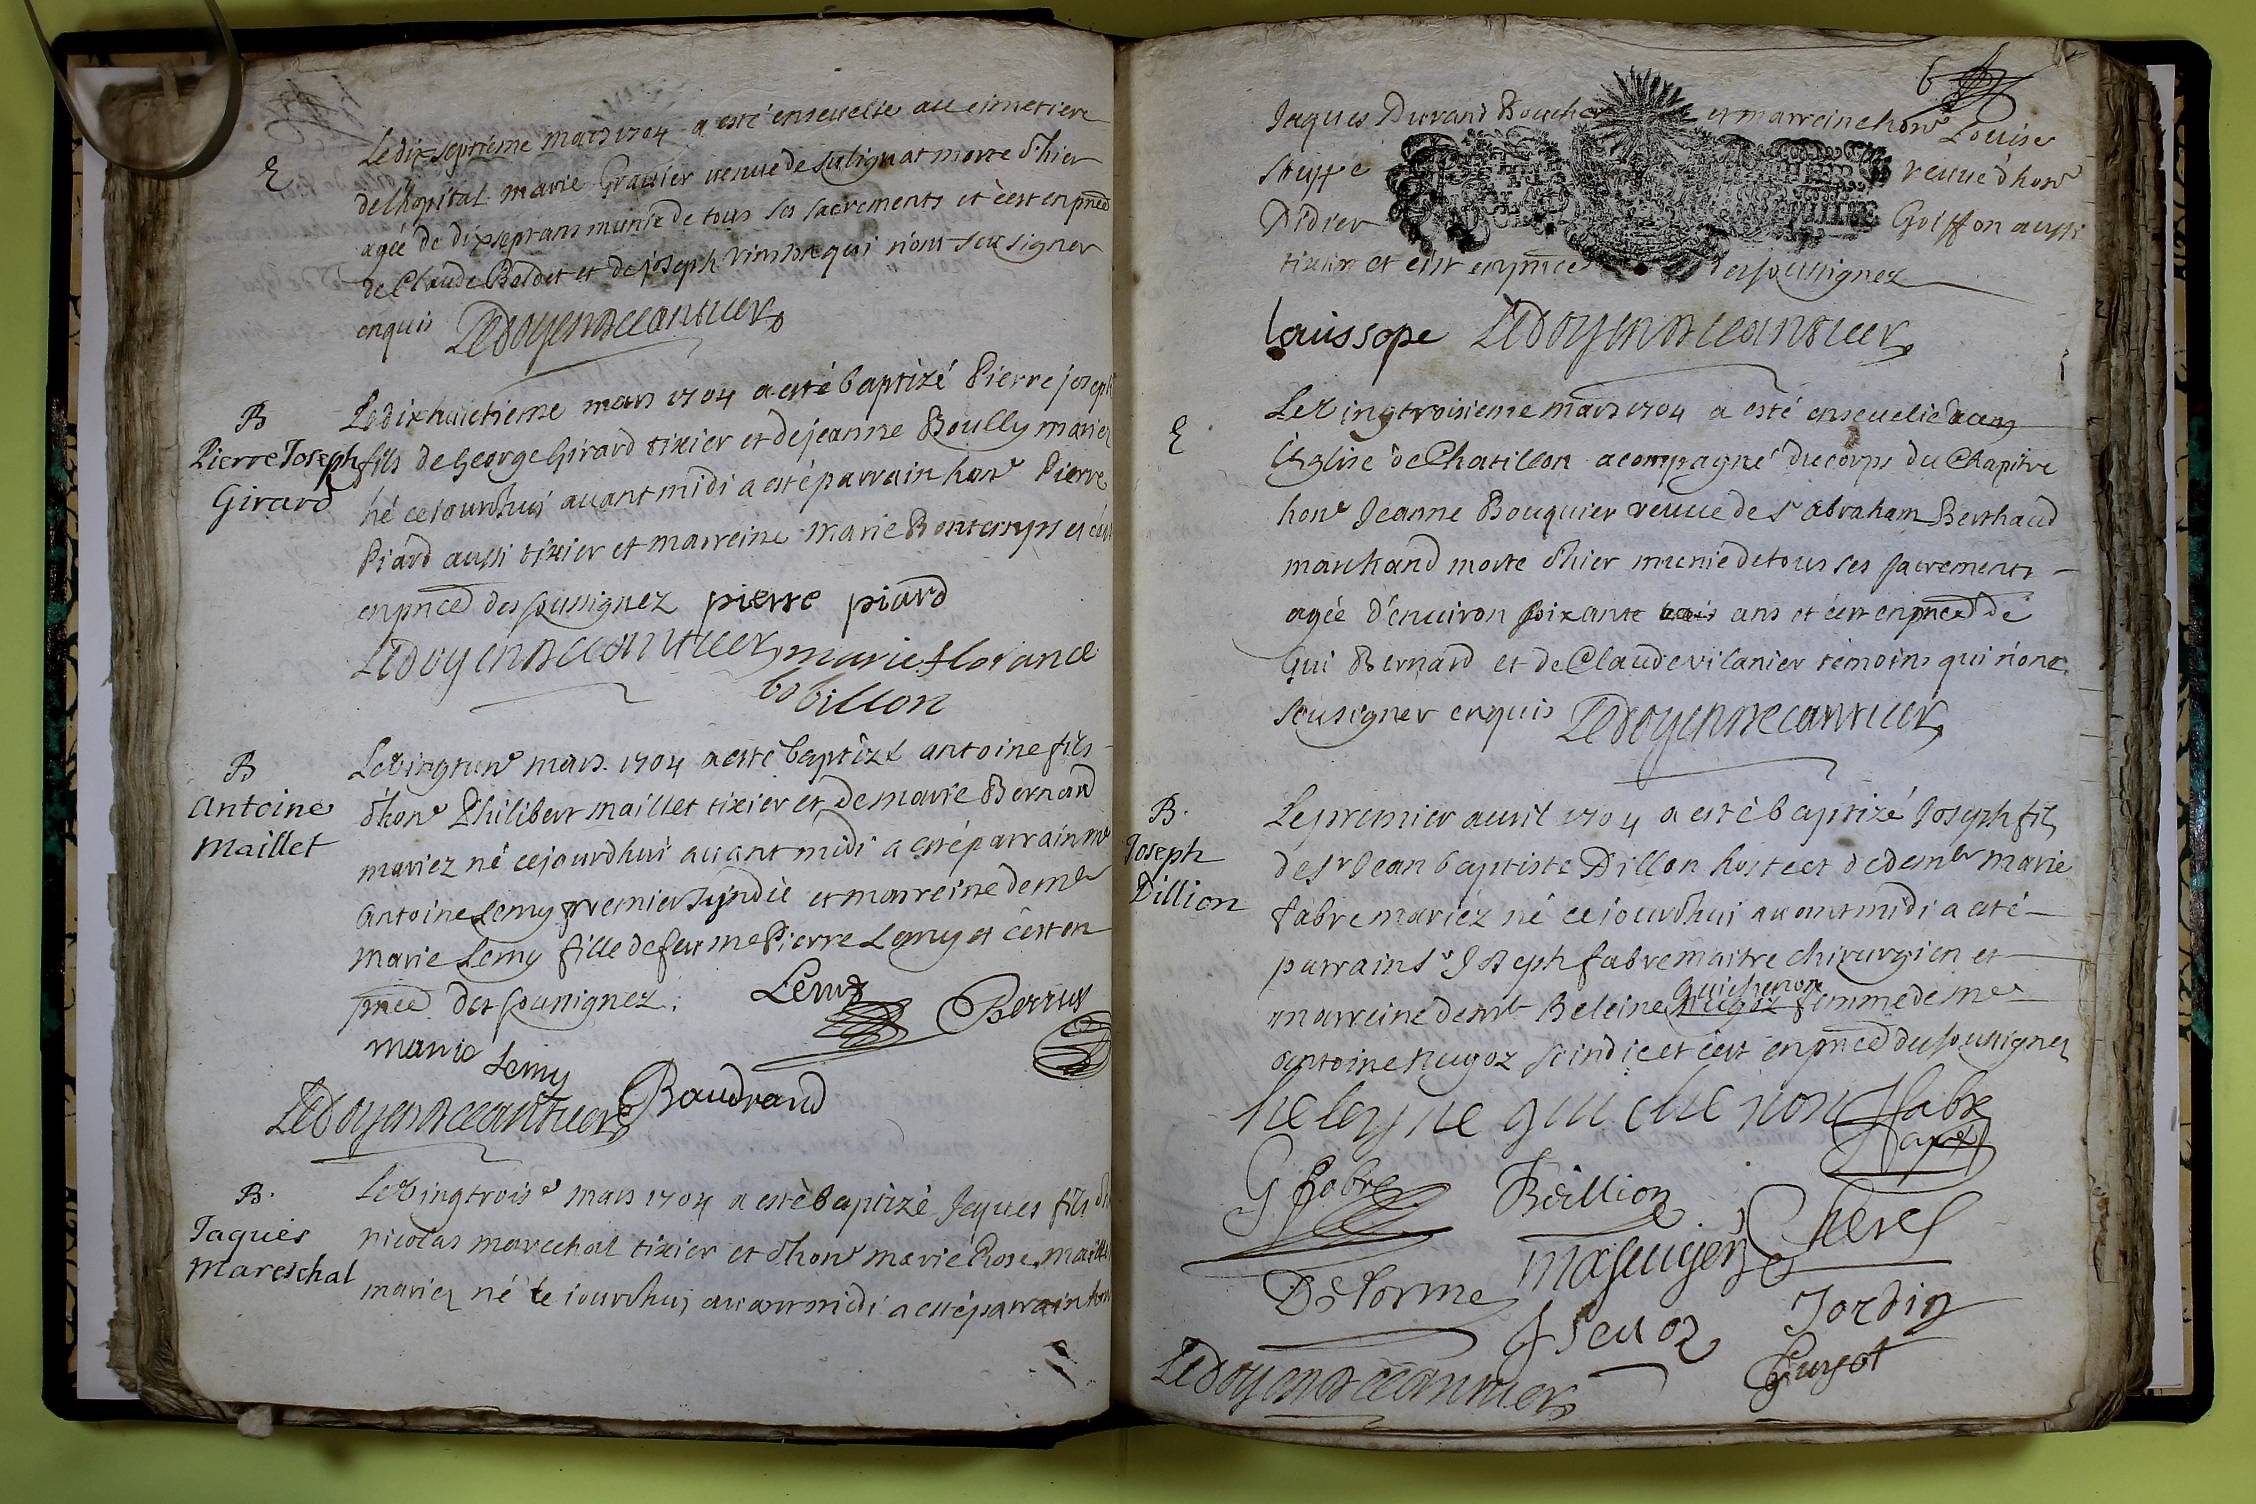 E
Le dix septiéme mars 1704 a esté enseuelie au cimetiere
de l'hopital marie Grauier veuue de salignat morte d'hier
agée de dixsept ans munie de tous ses sacrements et c'est en pnce
de Claude Boldet et de joseph vinson qui n'ont sceu signer
enquis
B
Pierre Joseph
Girard
Le dixhuictieme mars 1704 a esté baptizé Pierre joseph
fils de George Girard tixier et de jeanne Boully mariez
né cejourdhui auant midi a esté parrain hon^e Pierre
Piard aussi tixier et marreine Marie Bontemps et c'est
en pnce des soussignez pierre piard
marie florance
bobillon
B
Antoine
Maillet
Le vingtun^e mars 1704 a esté baptizé antoine fils
d'hon^e Philibert maillet tixier et de marie Bernard
mariez né cejourdhui auant midi a esté parrain m^e
Antoine Lemy premier sindic et marreine dem^le
Marie Lemy fille de feu m^e Pierre Lemy et c'est en
pnce des soussignez. Lemy
marie Lemy
Baudrand
B.
Jaques
Mareschal
Le vingtrois^e mars 1704 a esté baptizé Jaques fils d'h
nicolas marechal tixier et d'hon^e marie Rose
mariez né ce jourdhui auant midi a esté parrain hon
6
Jaques Durand Boucher et marreine hon^e Louise
veuue d'hon^e
Didier Goiffon aussi
tixier et c'est en pnce des soussignez
E
Le Vingtroisieme mars 1704 a esté enseuelie
l'Eglise de Chatillon acompagné du corps du Chapitre
hon^e Jeanne Bouquier veuue de s^r Abraham Berthaud
marchand morte d'hier munie de tous ses sacrements
agée d'enuiron soixante ans et c'est en pnce de
Gui Bernard et de Claude vilanier témoins qui n'ont
sceu signer enquis
B.
Joseph
Dillion
Le premier auril 1704 a esté baptizé Joseph fils
de s^r Jean baptiste Dillon hoste et de dem^le marie
fabre mariez né cejourdhui auant midi a esté
parrain s^r Joseph fabre maitre chirurgien et
guichenon
marreine dem^le Heleine femme de m^e
antoine nugoz scindic et c'est en pnce des soussignez
heleyne guichenon Jfabre
G fabre Dillion
Delorme
Jordin
Guyot